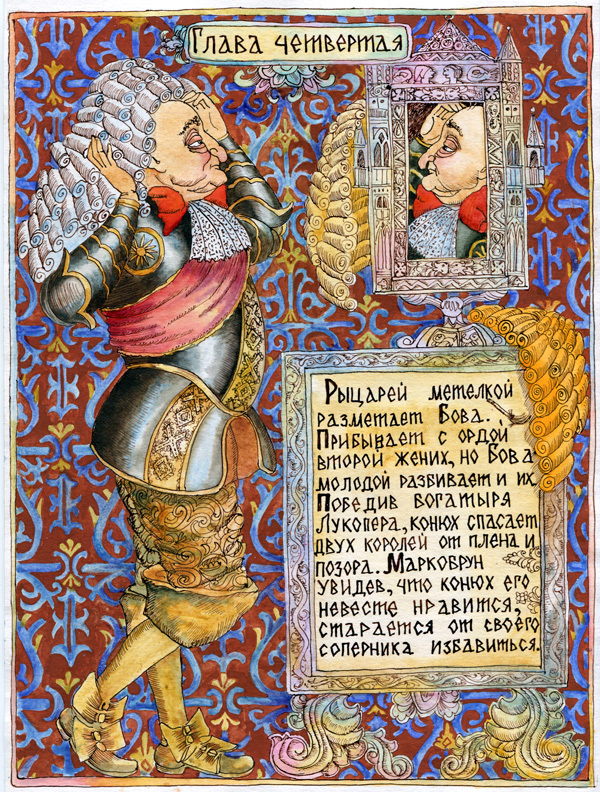 Глава четвертая
Рыцарей метелкой
разметает Бова.
Прибывает с ордой
второй жених, но Бова
молодой разбивает и их.
Победив богатыря
Лукопера, конюх спасает
двух королей от плена и
позора. Маркобрун
увидев, что конюх его
невесте нравится,
старается от своего
соперника избавиться.